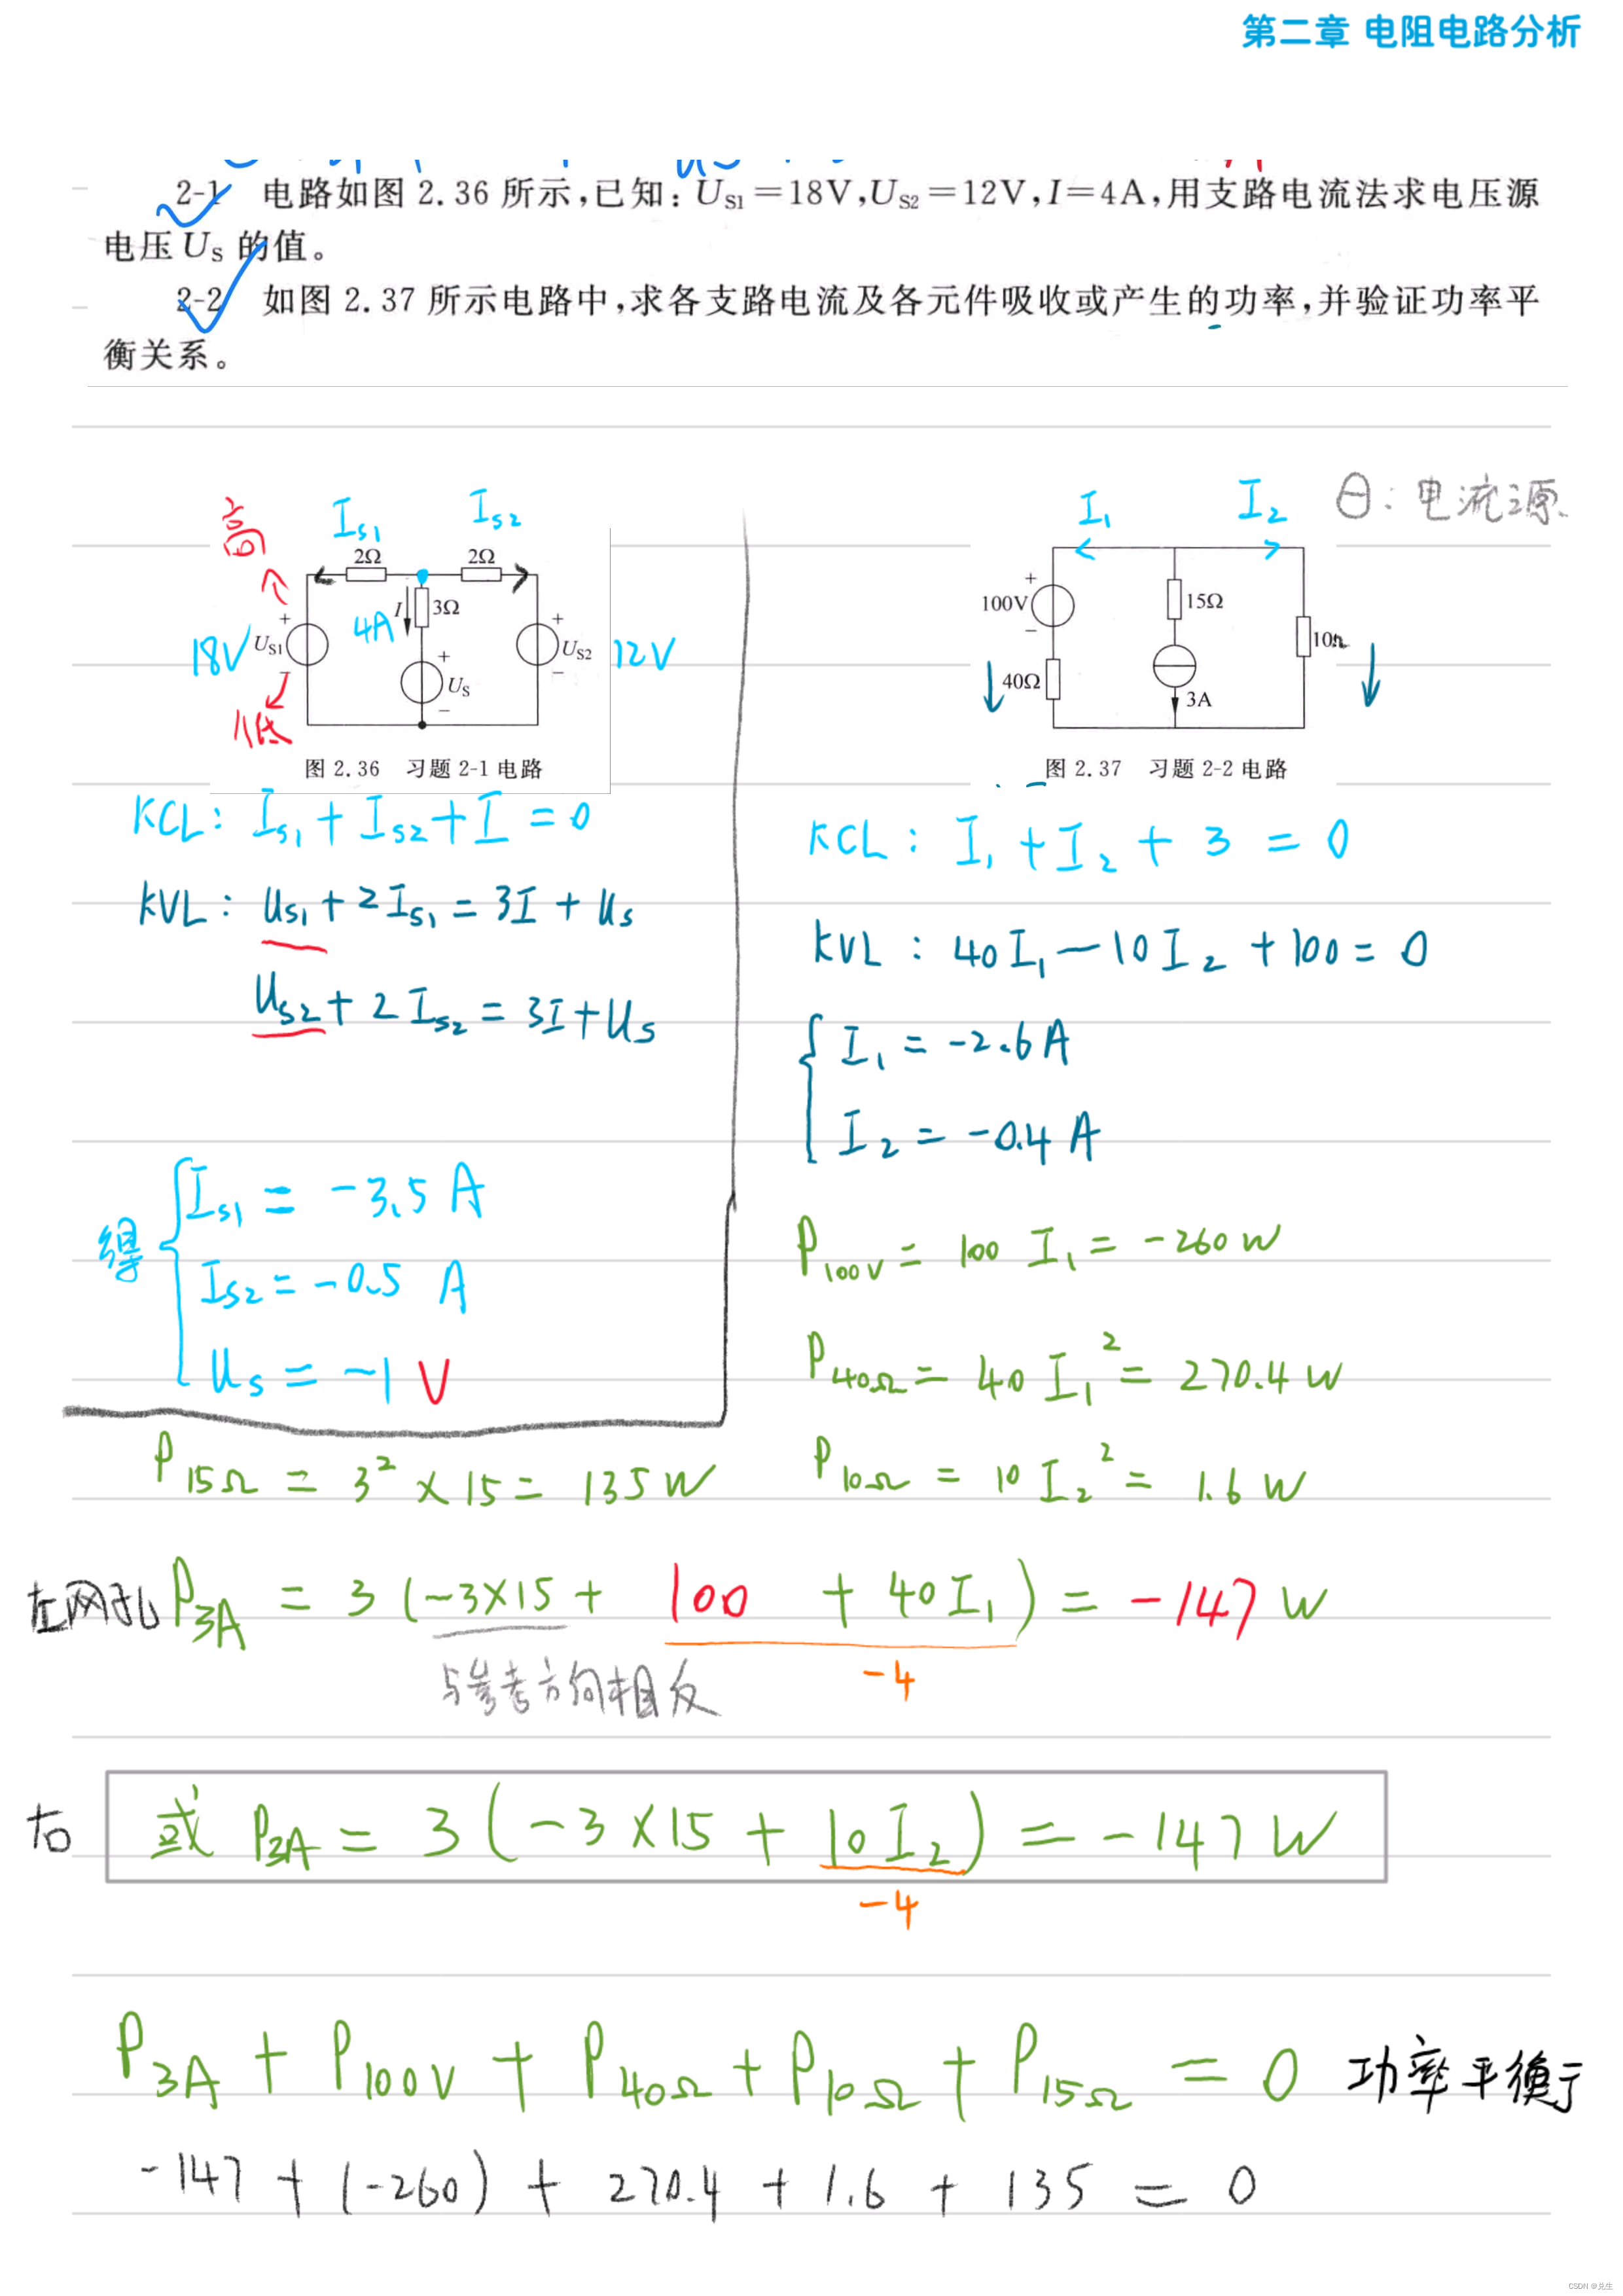 第二章 电阻电路分析
2-1 电路如图 2.36 所示,已知: U_S1=18V, U_S2=12V, I=4A, 用支路电流法求电压源
电压 U_S 的值。
2-2 如图 2.37 所示电路中,求各支路电流及各元件吸收或产生的功率,并验证功率平
衡关系。
高
I_S1
I_S2
2Ω
2Ω
I
3Ω
4A
+
18V
U_S1
−
低
+
U_S
−
+
U_S2
−
12V
图 2.36 习题 2-1 电路
KCL: I_S1 + I_S2 + I = 0
KVL: U_S1 + 2I_S1 = 3I + U_S
U_S2 + 2I_S2 = 3I + U_S
得
I_S1 = -3.5 A
I_S2 = -0.5 A
U_S = -1 V
I_1
I_2
θ: 电流源
+
100V
−
15Ω
10Ω
40Ω
3A
图 2.37 习题 2-2 电路
KCL: I_1 + I_2 + 3 = 0
KVL: 40I_1 - 10I_2 + 100 = 0
I_1 = -2.6A
I_2 = -0.4 A
P_100V = 100 I_1 = -260 W
P_40Ω = 40 I_1² = 270.4 W
P_15Ω = 3² × 15 = 135 W
P_10Ω = 10 I_2² = 1.6 W
左网孔 P_3A = 3 (-3×15 + 100 + 40I_1) = -147 W
与参考方向相反
-4
右 或 P_3A = 3 (-3×15 + 10I_2) = -147 W
-4
P_3A + P_100V + P_40Ω + P_10Ω + P_15Ω = 0 功率平衡
-147 + (-260) + 270.4 + 1.6 + 135 = 0